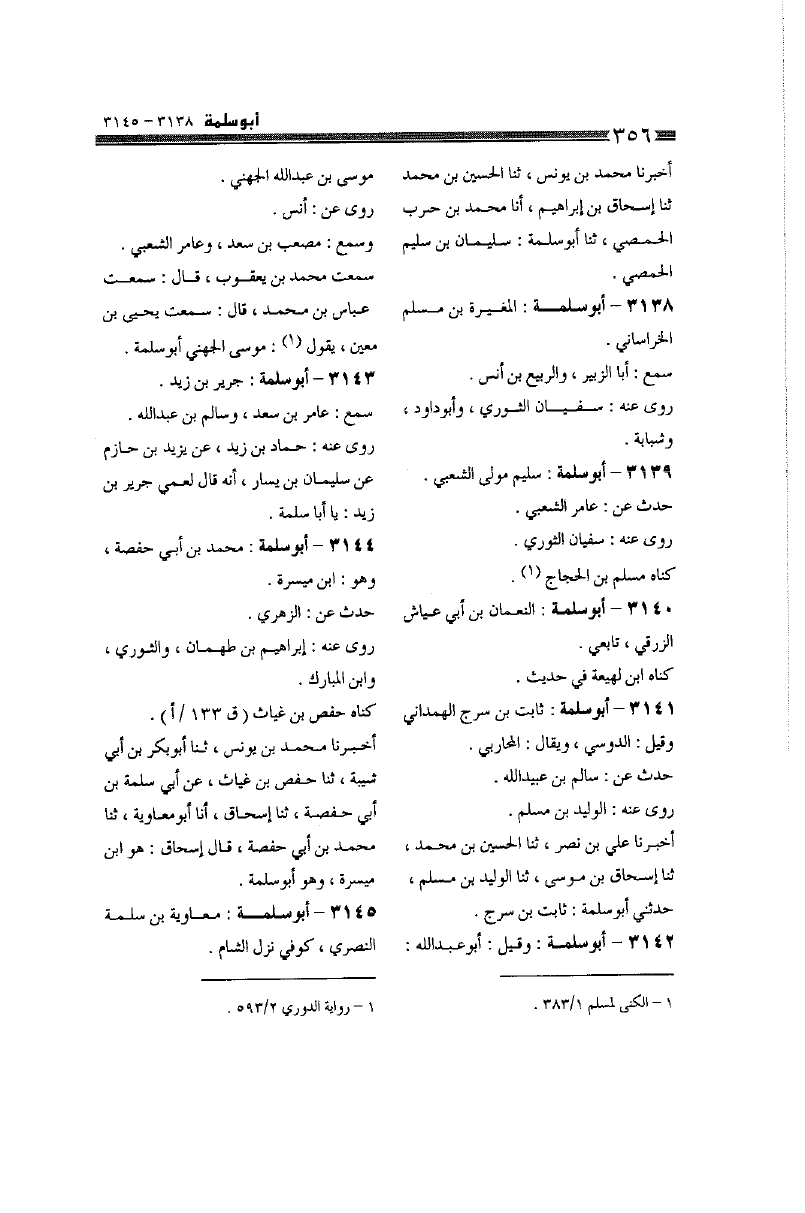 أبوسلمة ٣١٣٨ – ٣١٤٥
٣٥٦
أخبرنا محمد بن يونس ، ثنا الحسين بن محمد
ثنا إسحاق بن إبراهيم ، أنا محمد بن حرب
الحمصي ، ثنا أبوسلمة : سليمان بن سليم
الحمصي .
٣١٣٨ – أبوسلمة : المغيرة بن مسلم
الخراساني .
سمع : أبا الزبير ، والربيع بن أنس .
روى عنه : سفيان الثوري ، وأبوداود ،
وشبابة .
٣١٣٩ – أبوسلمة : سليم مولى الشعبي .
حدث عن : عامر الشعبي .
روى عنه : سفيان الثوري .
كناه مسلم بن الحجاج (١) .
٣١٤٠ – أبوسلمة : النعمان بن أبي عياش
الزرقي ، تابعي .
كناه ابن لهيعة في حديث .
٣١٤١ – أبوسلمة : ثابت بن سرج الهمداني
وقيل : الدوسي ، ويقال : المحاربي .
حدث عن : سالم بن عبيدالله .
روى عنه : الوليد بن مسلم .
أخبرنا علي بن نصر ، ثنا الحسين بن محمد ،
ثنا إسحاق بن موسى ، ثنا الوليد بن مسلم ،
حدثني أبوسلمة : ثابت بن سرج .
٣١٤٢ – أبوسلمة : وقيل : أبوعبدالله :
١ – الكنى لمسلم ٣٨٣/١ .
موسى بن عبدالله الجهني .
روى عن : أنس .
وسمع : مصعب بن سعد ، وعامر الشعبي .
سمعت محمد بن يعقوب ، قال : سمعت
عباس بن محمد ، قال : سمعت يحيى بن
معين ، يقول (١) : موسى الجهني أبوسلمة .
٣١٤٣ – أبوسلمة : جرير بن زيد .
سمع : عامر بن سعد ، وسالم بن عبدالله .
روى عنه : حماد بن زيد ، عن يزيد بن حازم
عن سليمان بن يسار ، أنه قال لعمي جرير بن
زيد : يا أبا سلمة .
٣١٤٤ – أبوسلمة : محمد بن أبي حفصة ،
وهو : ابن ميسرة .
حدث عن : الزهري .
روى عنه : إبراهيم بن طهمان ، والثوري ،
وابن المبارك .
كناه حفص بن غياث ( ق ١٣٣ / أ ) .
أخبرنا محمد بن يونس ، ثنا أبوبكر بن أبي
شيبة ، ثنا حفص بن غياث ، عن أبي سلمة بن
أبي حفصة ، ثنا إسحاق ، أنا أبومعاوية ، ثنا
محمد بن أبي حفصة ، قال إسحاق : هو ابن
ميسرة ، وهو أبوسلمة .
٣١٤٥ – أبوسلمة : معاوية بن سلمة
النصري ، كوفي نزل الشام .
١ – رواية الدوري ٥٩٣/٢ .